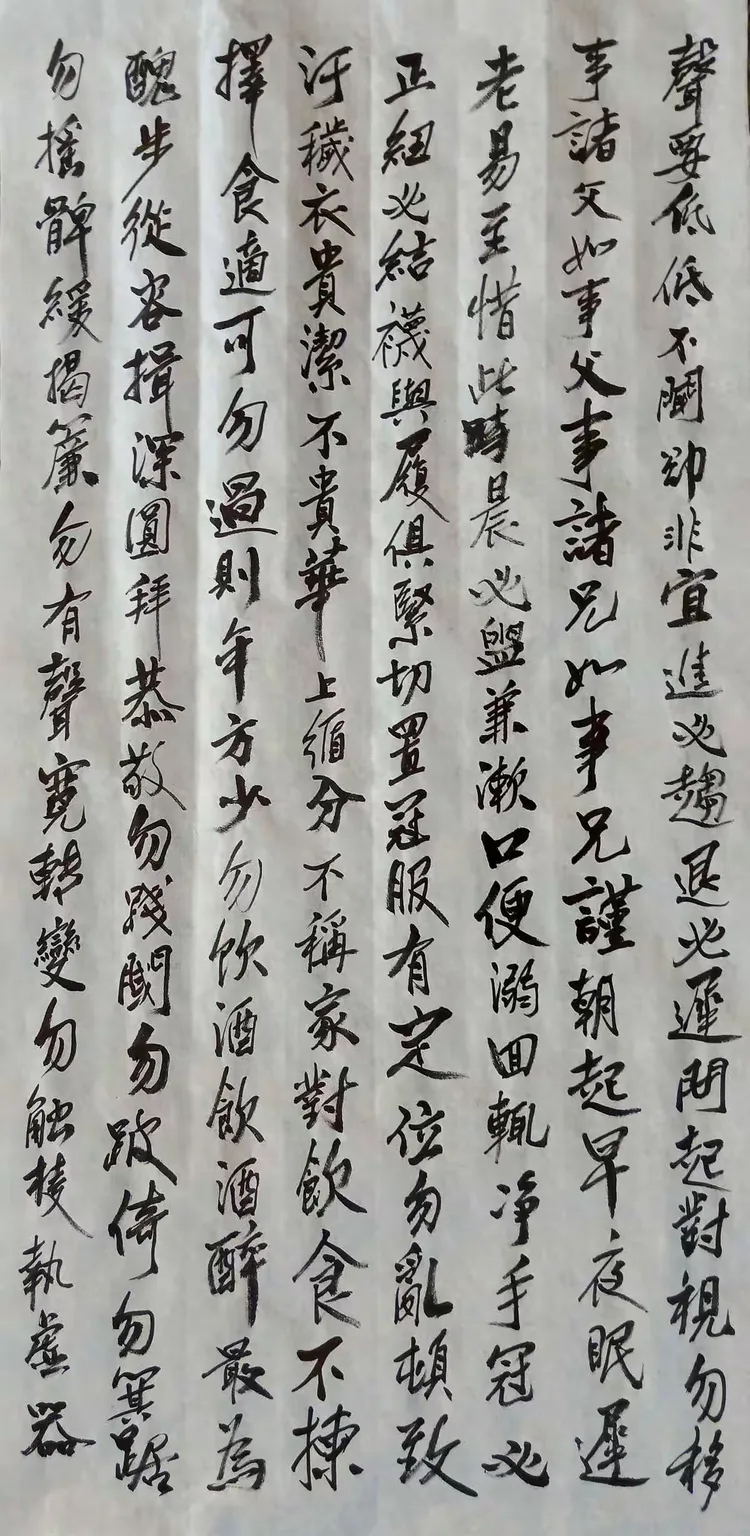 聲要低低不聞卻非宜進必趨退必遲問起對視勿移
事諸父如事父事諸兄如事兄謹朝起早夜眠遲
老易至惜此時晨必盥兼漱口便溺回輒净手冠必
正紐必結襪與履俱緊切置冠服有定位勿亂頓致
汙穢衣貴潔不貴華上循分不稱家對飲食不揀
擇食適可勿過則年方少勿飲酒飲酒醉最為
醜步從容揖深圓拜恭敬勿踐閾勿跛倚勿箕踞
勿搖髀緩揭簾勿有聲寬轉彎勿觸棱執虛器